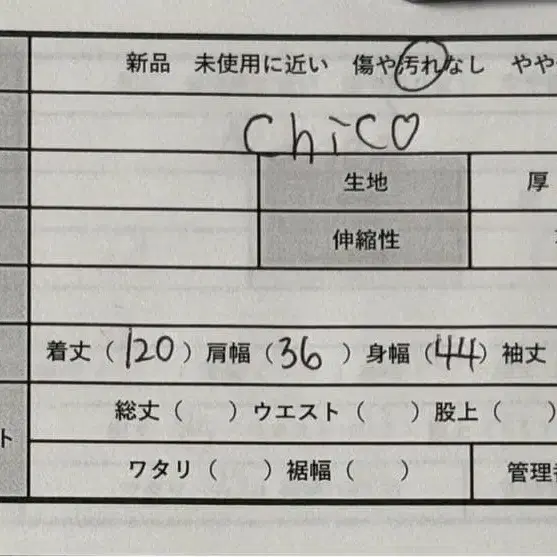 新品 未使用に近い 傷や汚れなし やや
chico
生地 厚
伸縮性
着丈（120）肩幅（36）身幅（44）袖丈
総丈（ ）ウエスト（ ）股上（ ）
ト
ワタリ（ ）裾幅（ ） 管理